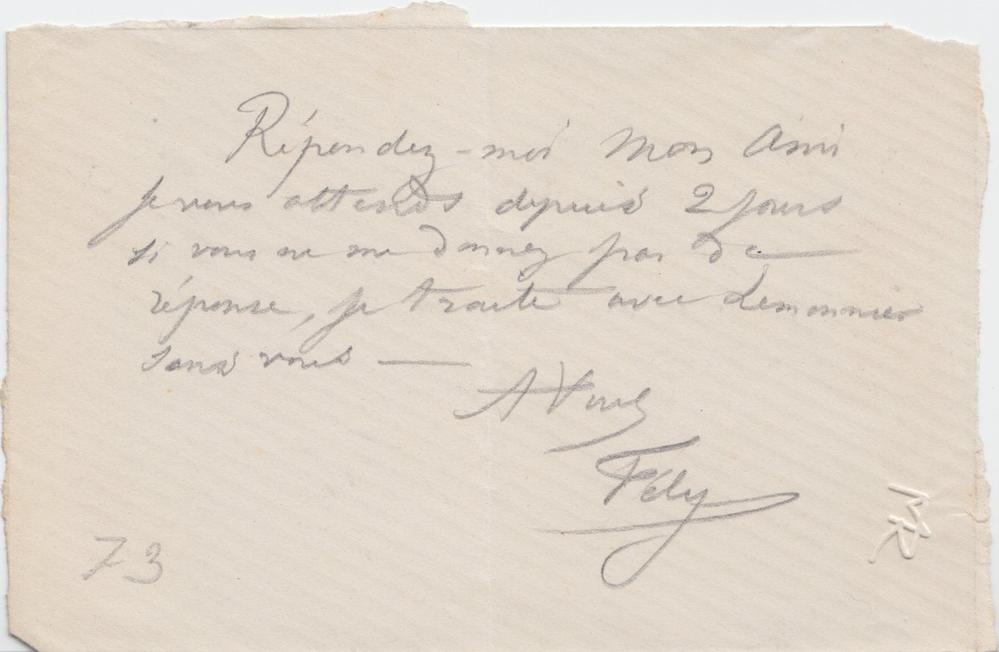 Répondez-moi Mon Ami
Je vous attends depuis 2 jours
si vous ne me donnez pas de
réponse, je traite avec Lemonnier
sans vous —
A Vous
Fély
73